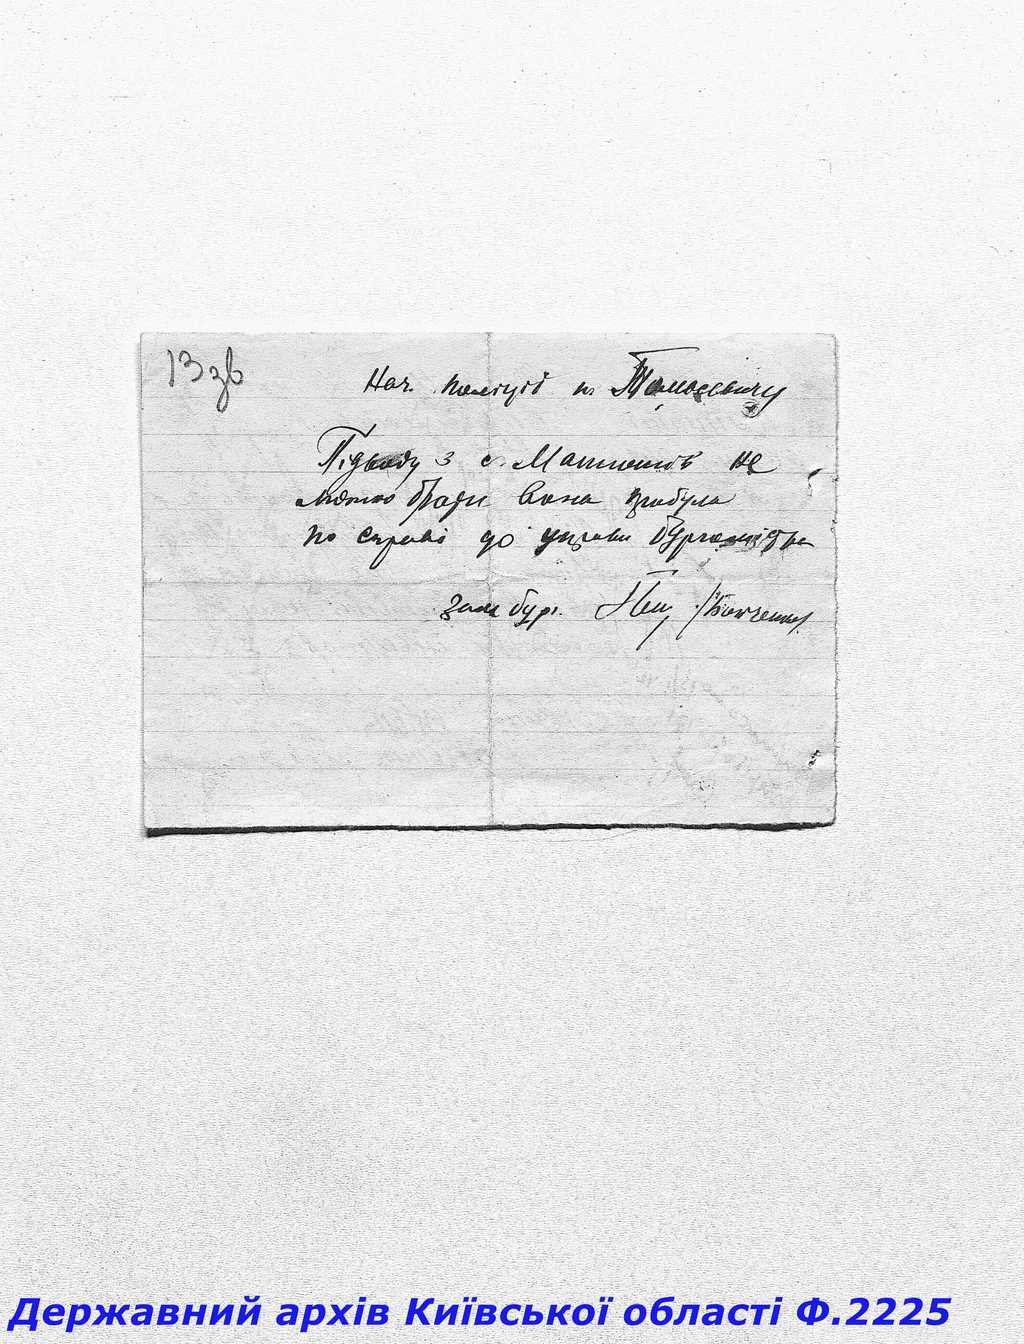 13 зв
Нач. поліції п. Томасевичу
Підводу з с. не
можно брати вона прибула
по справі до управи бургомістра
зам бур.
Державний архів Київської області Ф.2225